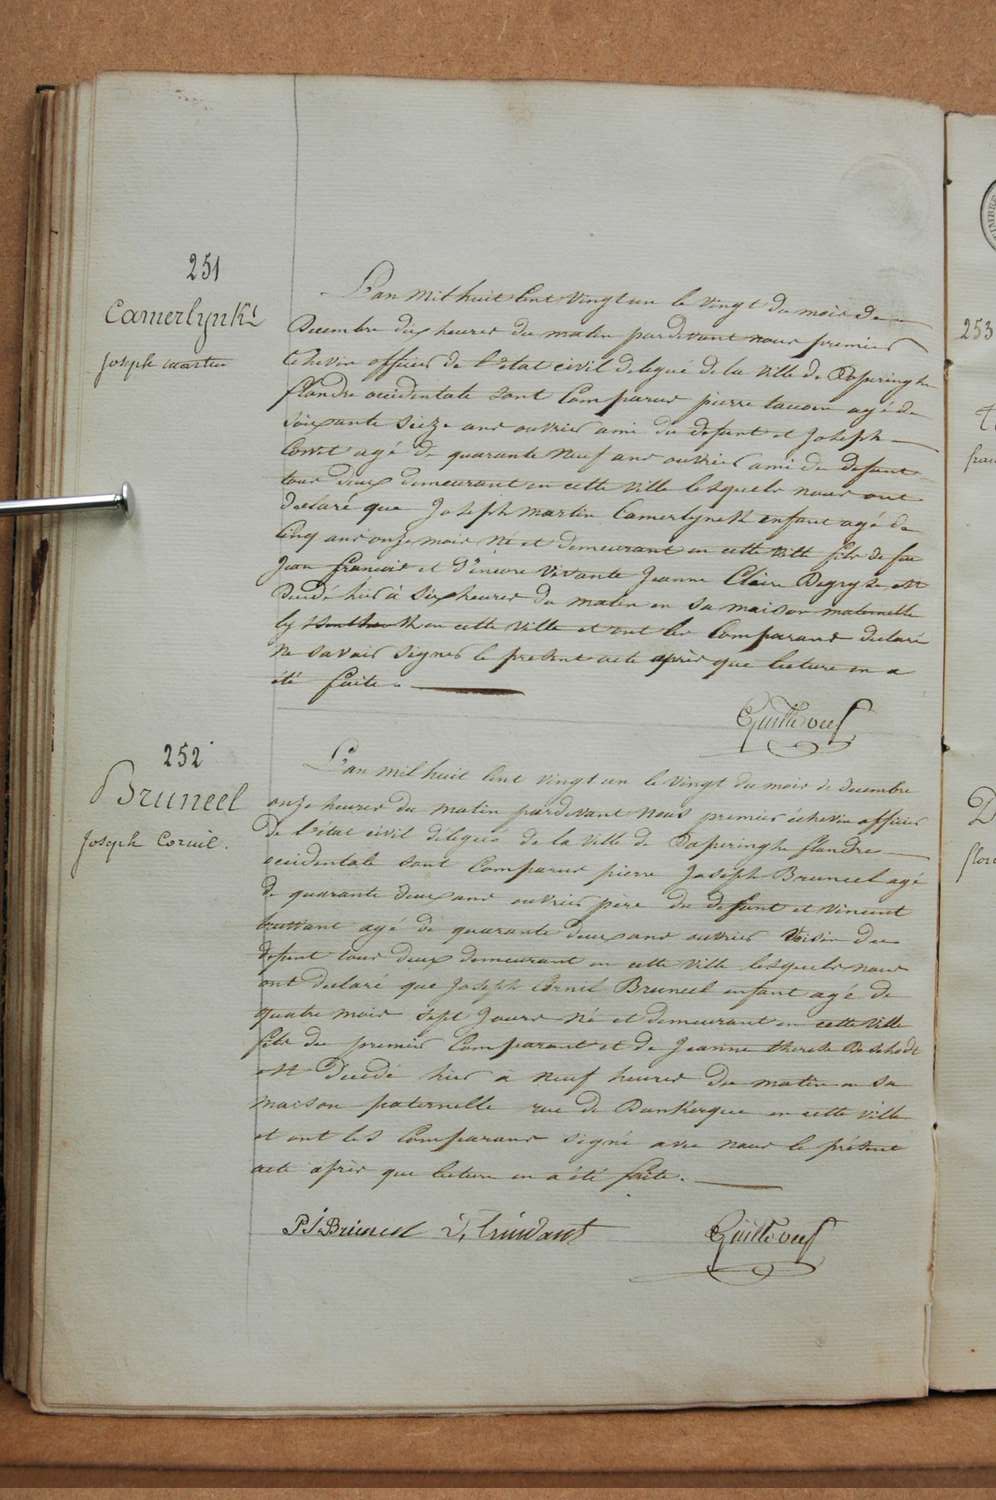 251
Camerlynck
Joseph martin
L'an mil huit Cent vingt un le vingt du mois de
Decembre dix heures du matin pardevant nous premier
Echevin officier de l'etat civil delegué de la ville de Poperinghe
flandre occidentale sont Comparus pierre agé de
soixante seize ans ouvrier ami du defunt et Joseph
agé de quarante Neuf ans ouvrier ami du defunt
tous deux demeurant en cette ville lesquels nous ont
declaré que Joseph martin Camerlynck enfant agé de
Cinq ans onze mois Né et demeurant en cette ville fils de feu
Jean francois et d'encore vivante Jeanne Claire Degryse est
Decedé hier à six heures du matin en sa maison maternelle
en cette ville et ont les Comparans declaré
Ne savoir signer le present acte après que lecture en a
été faite.
252
Bruneel
Joseph Corneil.
L'an mil huit Cent vingt un le vingt du mois de decembre
onze heures du matin pardevant Nous premier échevin officier
de l'état civil délegué de la ville de Poperinghe flandre
occidentale sont Comparus pierre Joseph Bruneel agé
de quarante deux ans ouvrier pere du defunt et vincent
agé de quarante deux ans ouvrier Voisin du
defunt tous deux demeurant en cette ville lesquels nous
ont declaré que Joseph Cornil Bruneel enfant agé de
quatre mois sept Jours Né et demeurant en cette ville
fils du premier Comparant et de Jeanne therese
est Decedé hier a Neuf heures du matin en sa
maison paternelle rue de Dunkerque en cette ville
et ont les Comparans signé avec nous le présent
acte après que lecture en a été faite.
PJ Bruneel
253